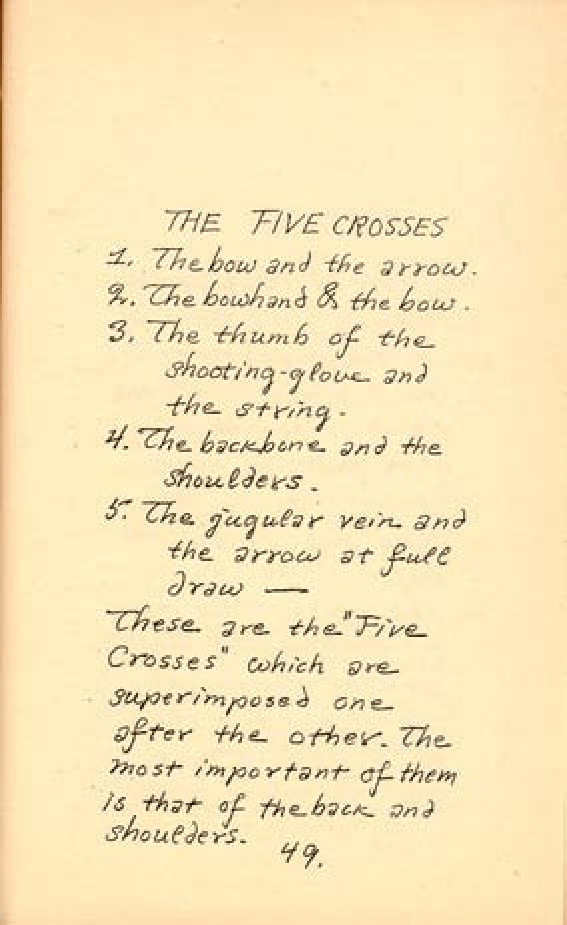 THE FIVE CROSSES
1. The bow and the arrow.
2. The bowhand & the bow.
3. The thumb of the
shooting-glove and
the string.
4. The backbone and the
shoulders.
5. The jugular vein and
the arrow at full
draw —
These are the "Five
Crosses" which are
superimposed one
after the other. The
most important of them
is that of the back and
shoulders.
49.